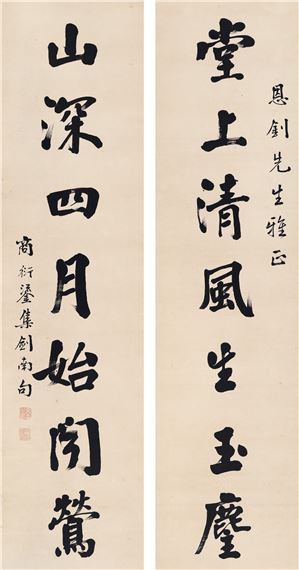 恩釗先生雅正
堂上清風生玉麈
山深四月始聞鶯
商衍鎏集劍南句